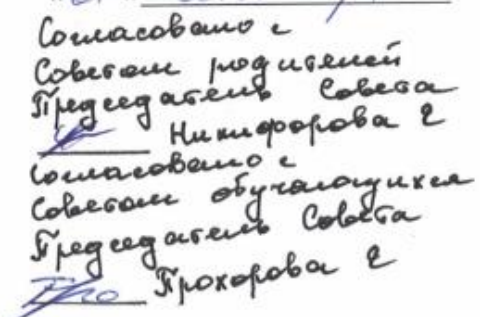 Согласовано с
Советом родителей
Председатель Совета
Никифорова Г
Согласовано с
Советом обучающихся
Председатель Совета
Прохорова Г